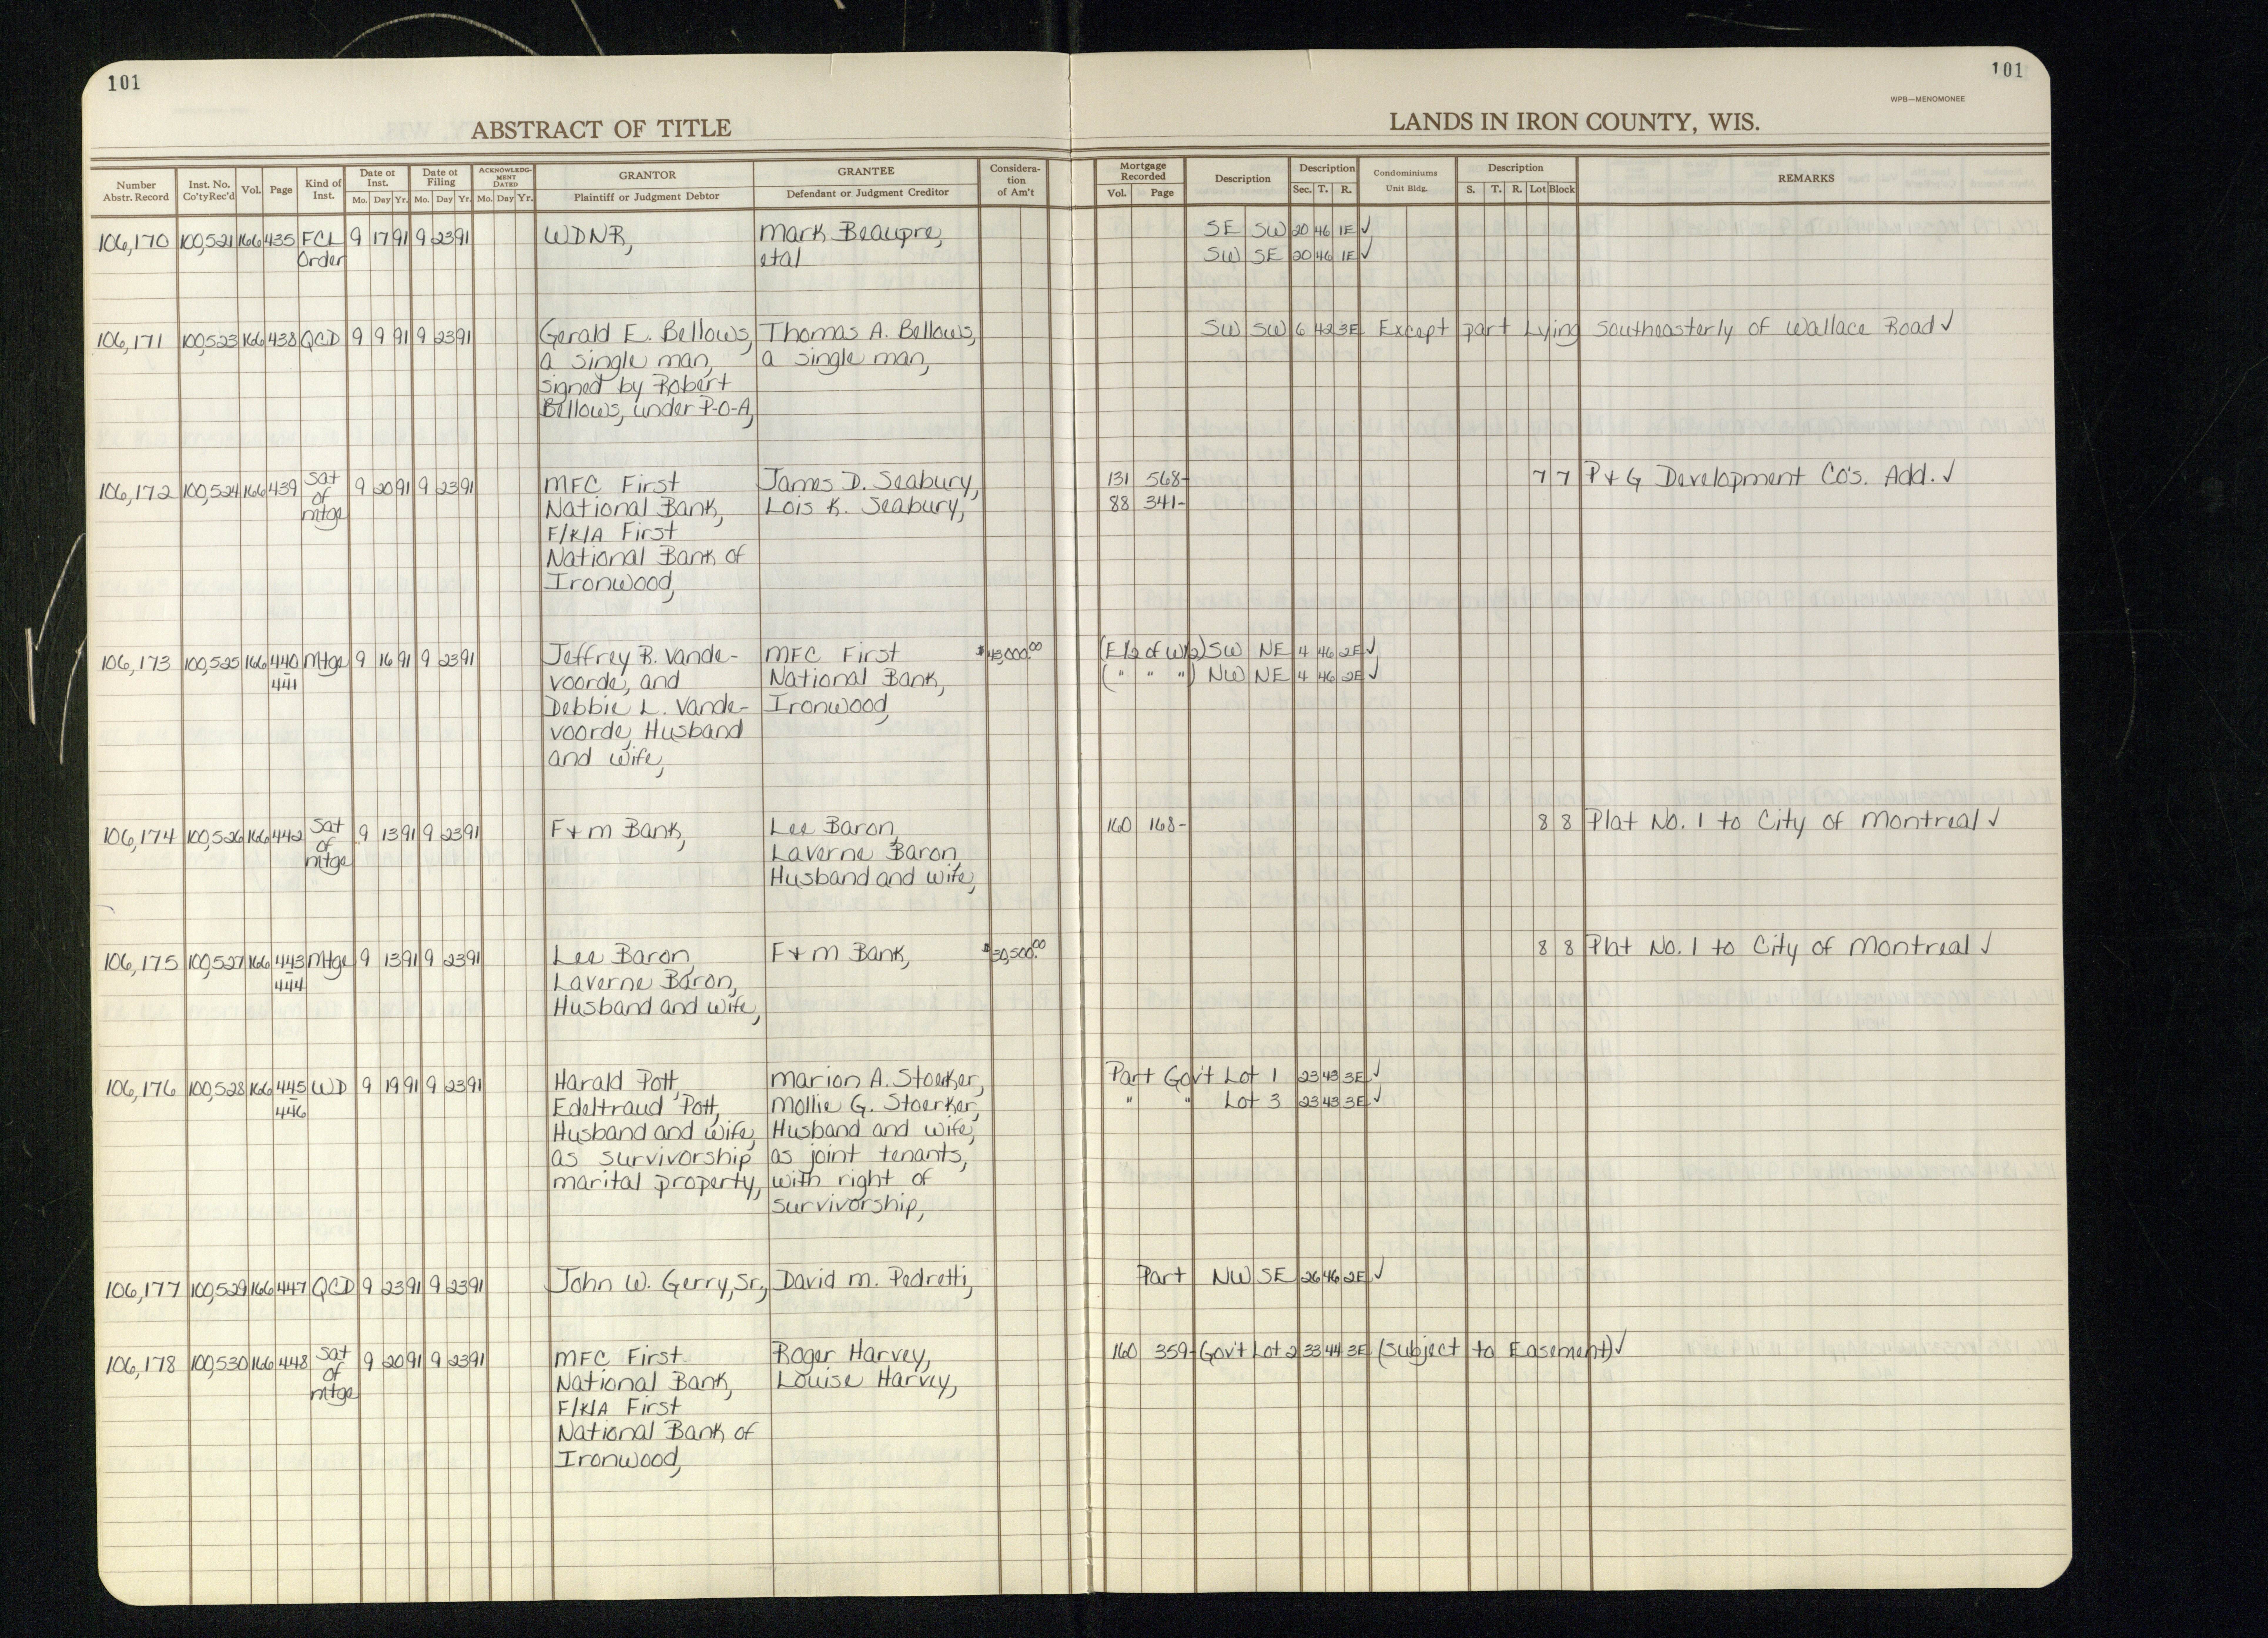 101
101
WPB—MENOMONEE
ABSTRACT OF TITLE
LANDS IN IRON COUNTY, WIS.
Number Abstr. Record | Inst. No. Co'ty Rec'd | Vol. | Page | Kind of Inst. | Date of Inst. Mo. Day Yr. | Date of Filing Mo. Day Yr. | ACKNOWLEDG-MENT DATED Mo. Day Yr. | GRANTOR Plaintiff or Judgment Debtor | GRANTEE Defendant or Judgment Creditor | Considera-tion of Am't | Mortgage Recorded Vol. Page | Description | Description Sec. T. R. | Condominiums Unit Bldg. | Description S. T. R. Lot Block | REMARKS
106,170 100,521 166 435 FCL 9 17 91 9 23 91 WDNR, Mark Beaupre, SE SW 20 46 1E ✓
Order etal SW SE 20 46 1E ✓
106,171 100,523 166 438 QCD 9 9 91 9 23 91 Gerald E. Bellows, Thomas A. Bellows, SW SW 6 42 3E Except part Lying Southeasterly of Wallace Road ✓
a single man, a single man,
signed by Robert
Bellows, under P-O-A,
106,172 100,524 166 439 Sat of mtge 9 20 91 9 23 91 MFC First James D. Seabury, 131 568- 7 7 P & G Development Co's. Add. ✓
National Bank, Lois K. Seabury, 88 341-
F/K/A First
National Bank of
Ironwood,
106,173 100,525 166 440 Mtge 9 16 91 9 23 91 Jeffrey R. Vande- MFC First $45,000.00 (E1/2 of W1/2) SW NE 4 46 2E ✓
-441 voorde, and National Bank, ( " " " ) NW NE 4 46 2E ✓
Debbie L. Vande- Ironwood,
voorde, Husband
and wife,
106,174 100,526 166 442 Sat of mtge 9 13 91 9 23 91 F & M Bank, Lee Baron, 160 168- 8 8 Plat No. 1 to City of Montreal ✓
Laverne Baron,
Husband and wife,
106,175 100,527 166 443 Mtge 9 13 91 9 23 91 Lee Baron, F & M Bank, $30,500.00 8 8 Plat No. 1 to City of Montreal ✓
-444 Laverne Baron,
Husband and wife,
106,176 100,528 166 445 WD 9 19 91 9 23 91 Harald Pott, Marion A. Stoerker, Part Gov't Lot 1 23 43 3E ✓
-446 Edeltraud Pott, Mollie G. Stoerker, " " Lot 3 23 43 3E ✓
Husband and wife, Husband and wife,
as survivorship as joint tenants,
marital property, with right of
survivorship,
106,177 100,529 166 447 QCD 9 23 91 9 23 91 John W. Gerry, Sr., David M. Pedretti, Part NW SE 26 46 2E ✓
106,178 100,530 166 448 Sat of mtge 9 20 91 9 23 91 MFC First Roger Harvey, 160 359- Gov't Lot 2 33 44 3E (Subject to Easement) ✓
National Bank, Louise Harvey,
F/K/A First
National Bank of
Ironwood,